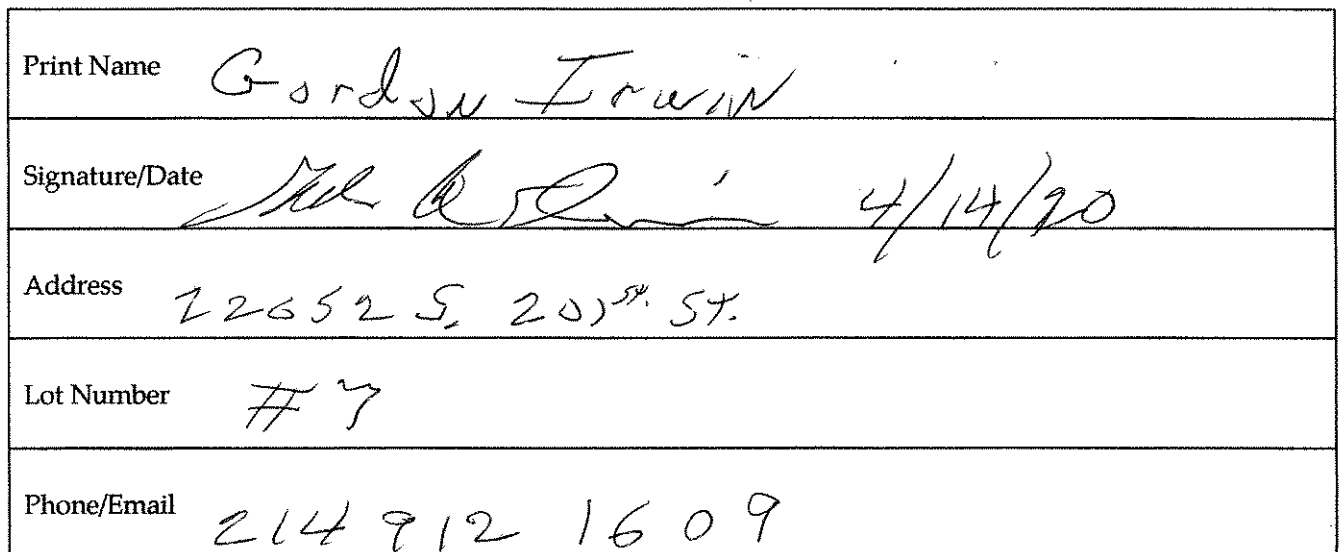 Print Name Gordon Irwin
Signature/Date 4/14/20
Address 22652 S. 201st. St.
Lot Number #7
Phone/Email 214 912 1609